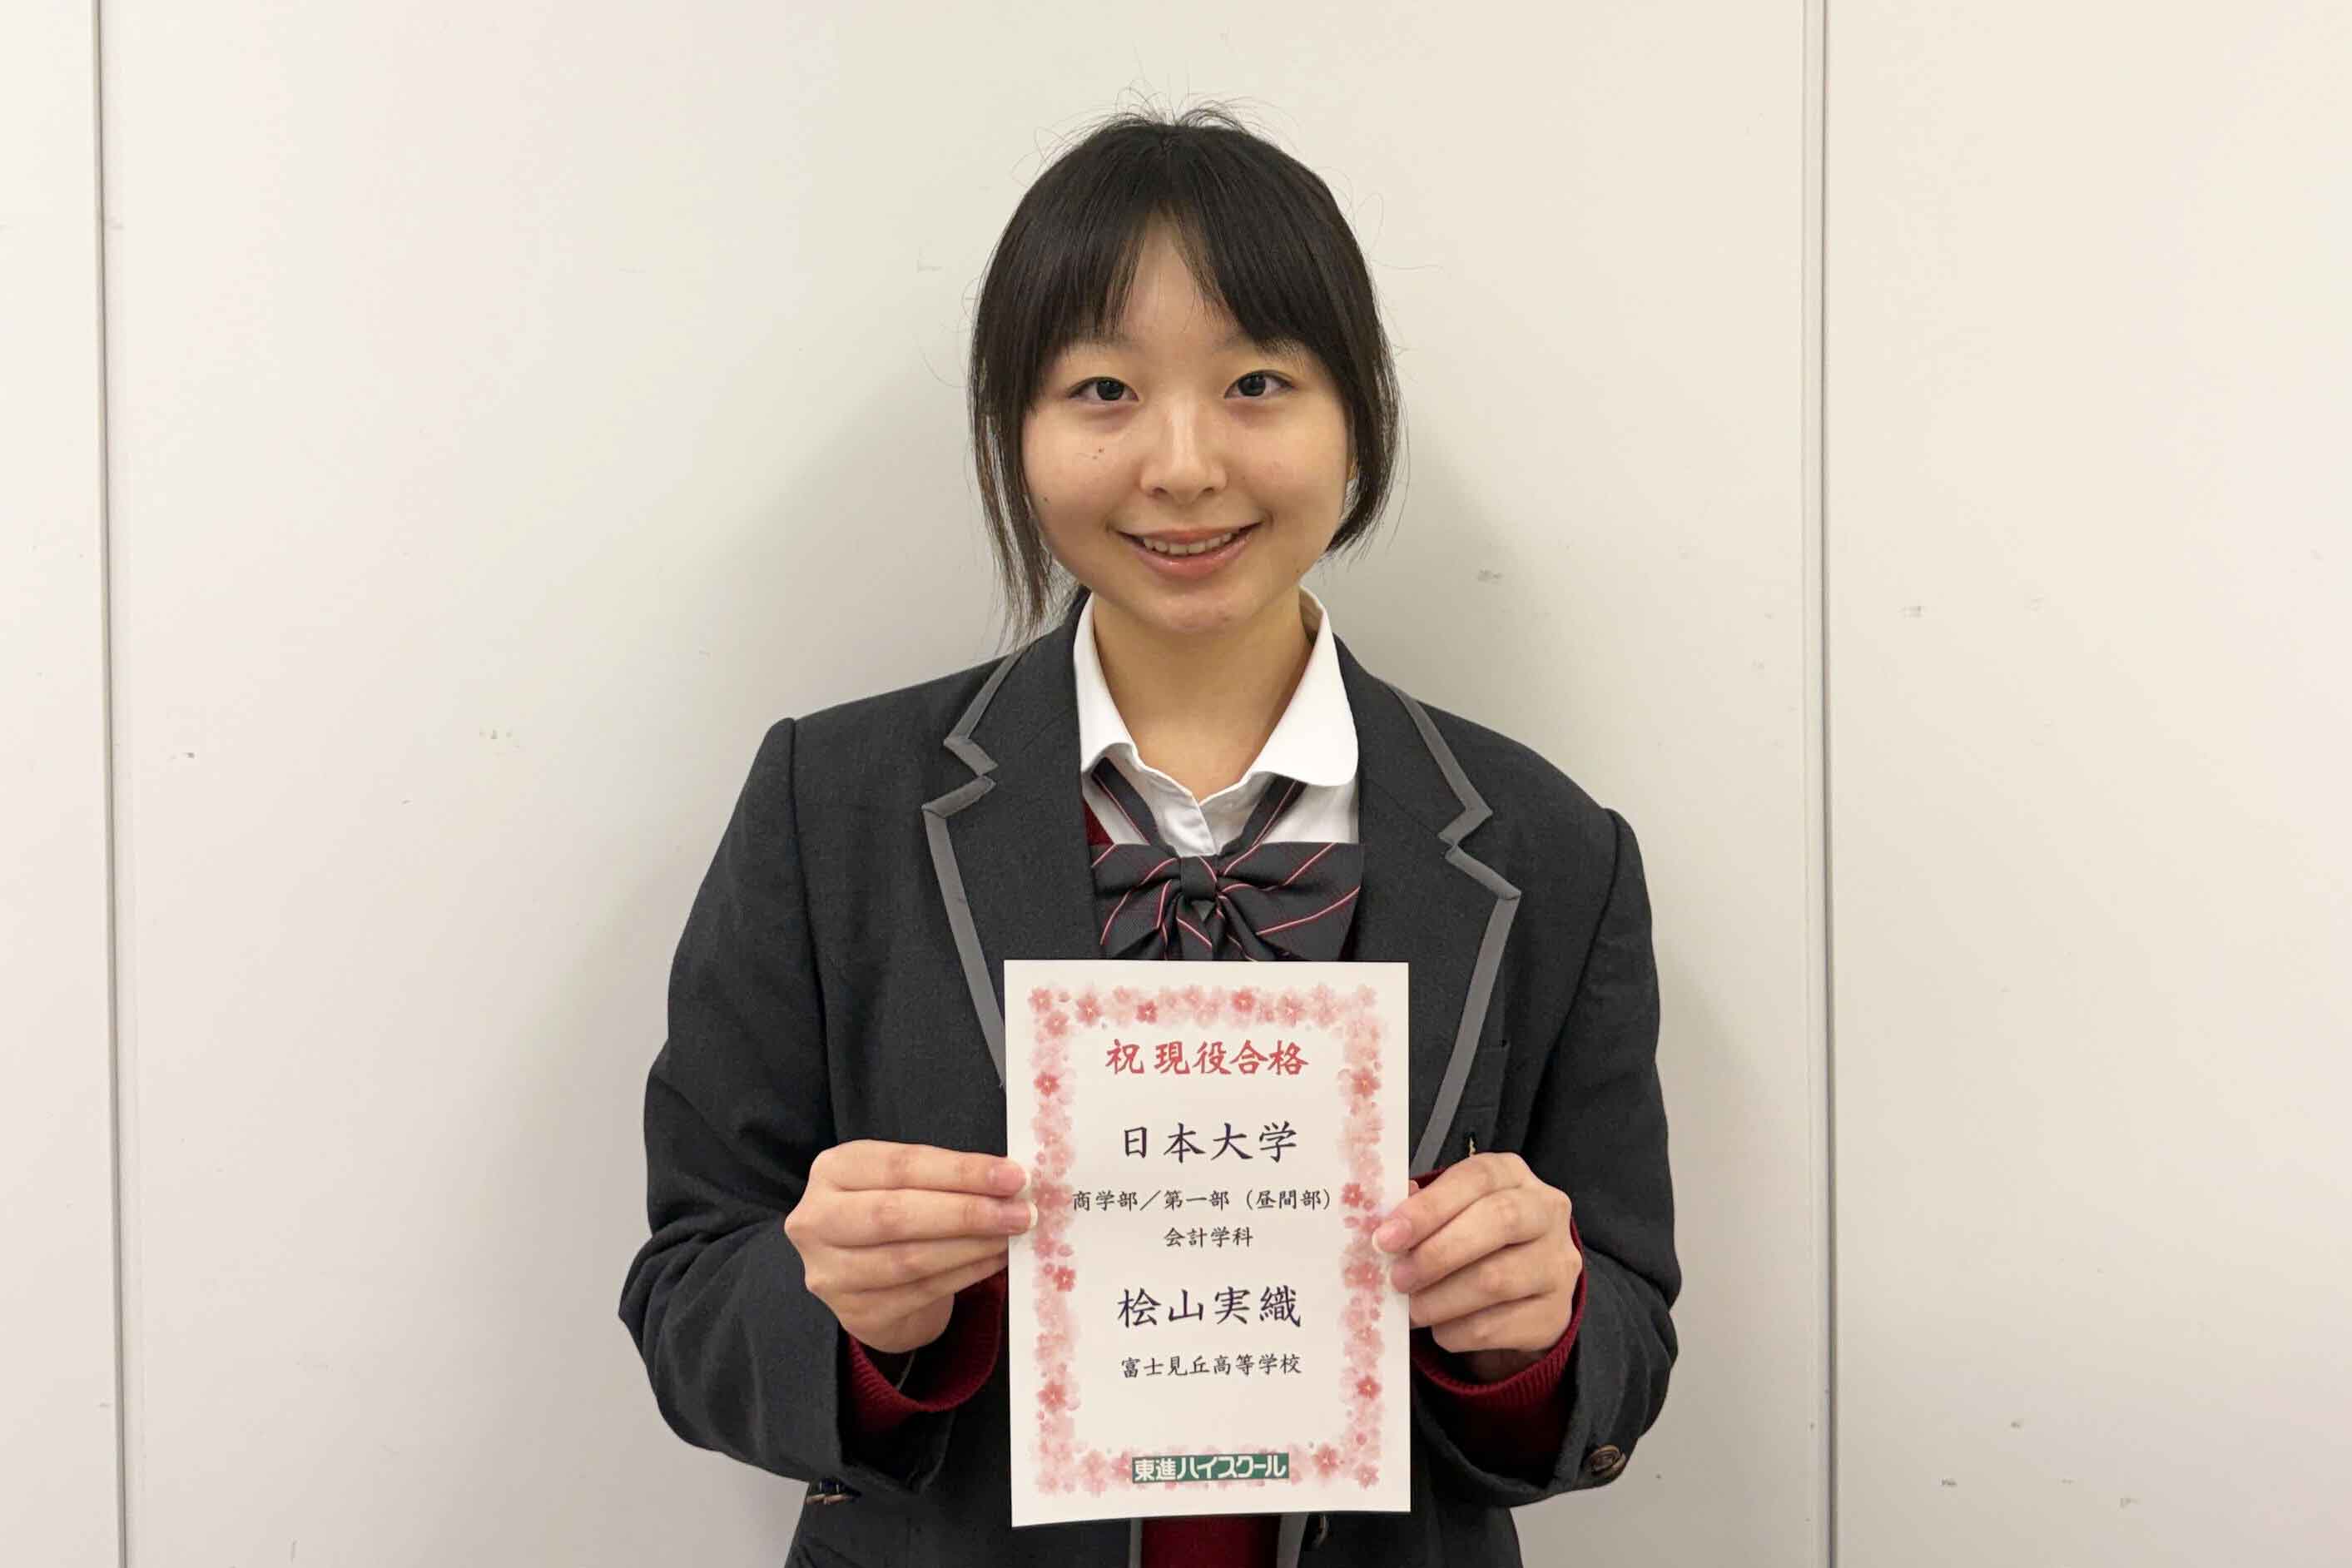 祝 現役合格
日本大学
商学部／第一部（昼間部）
会計学科
桧山実織
富士見丘高等学校
東進ハイスクール